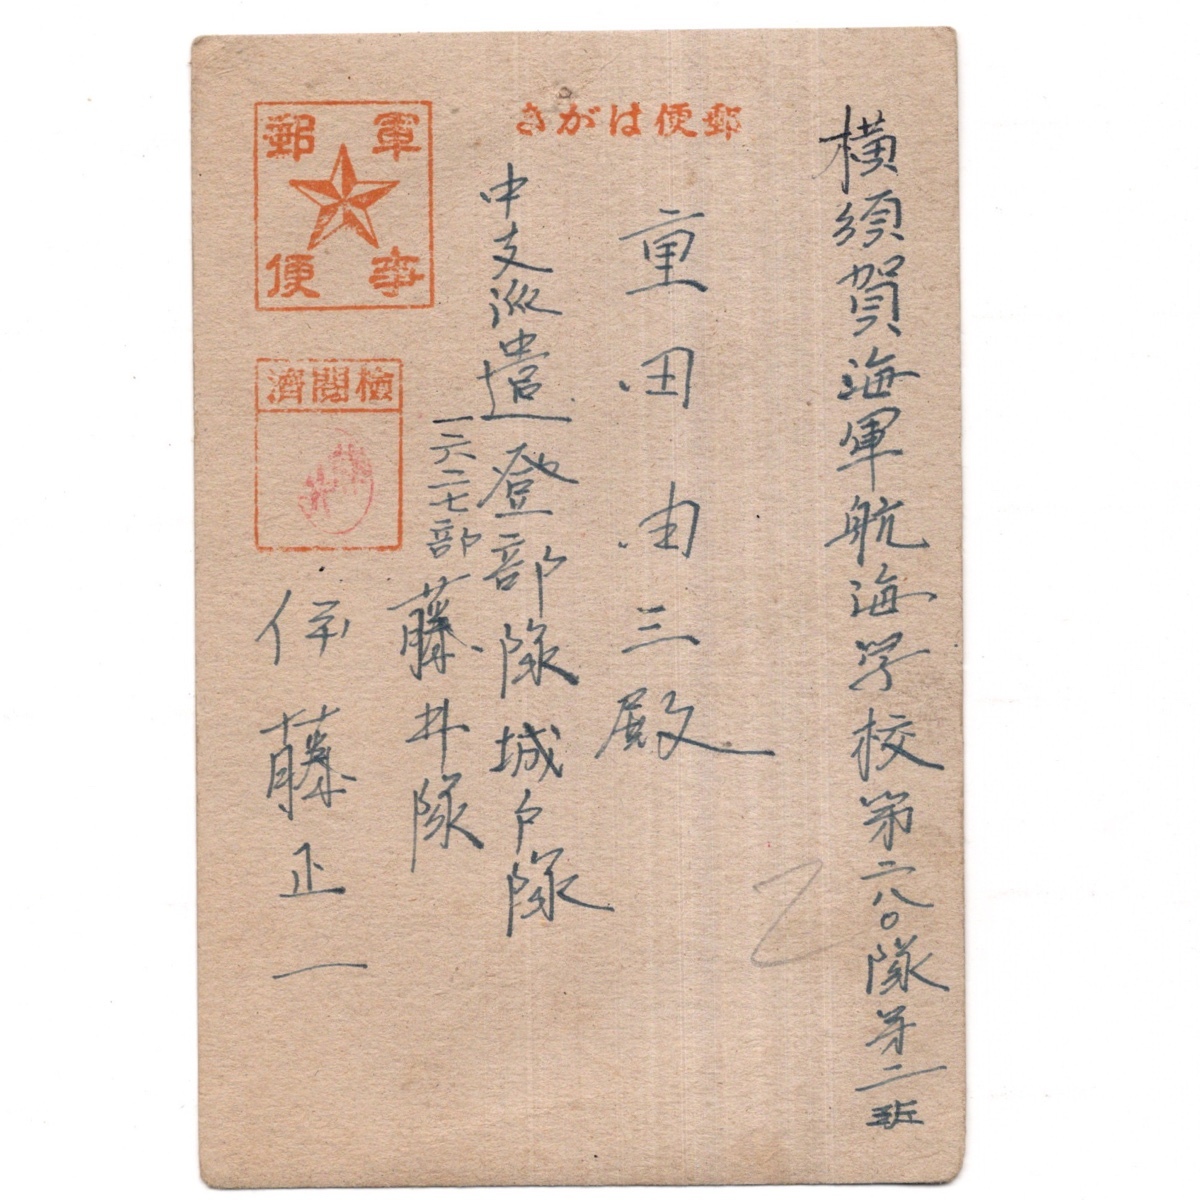 郵便はがき
軍事
郵便
検閲済
横須賀海軍航海学校第二八〇隊第二班
重田由三殿
中支派遣登部隊城戸隊
一六二七部
藤井隊
伊藤正一